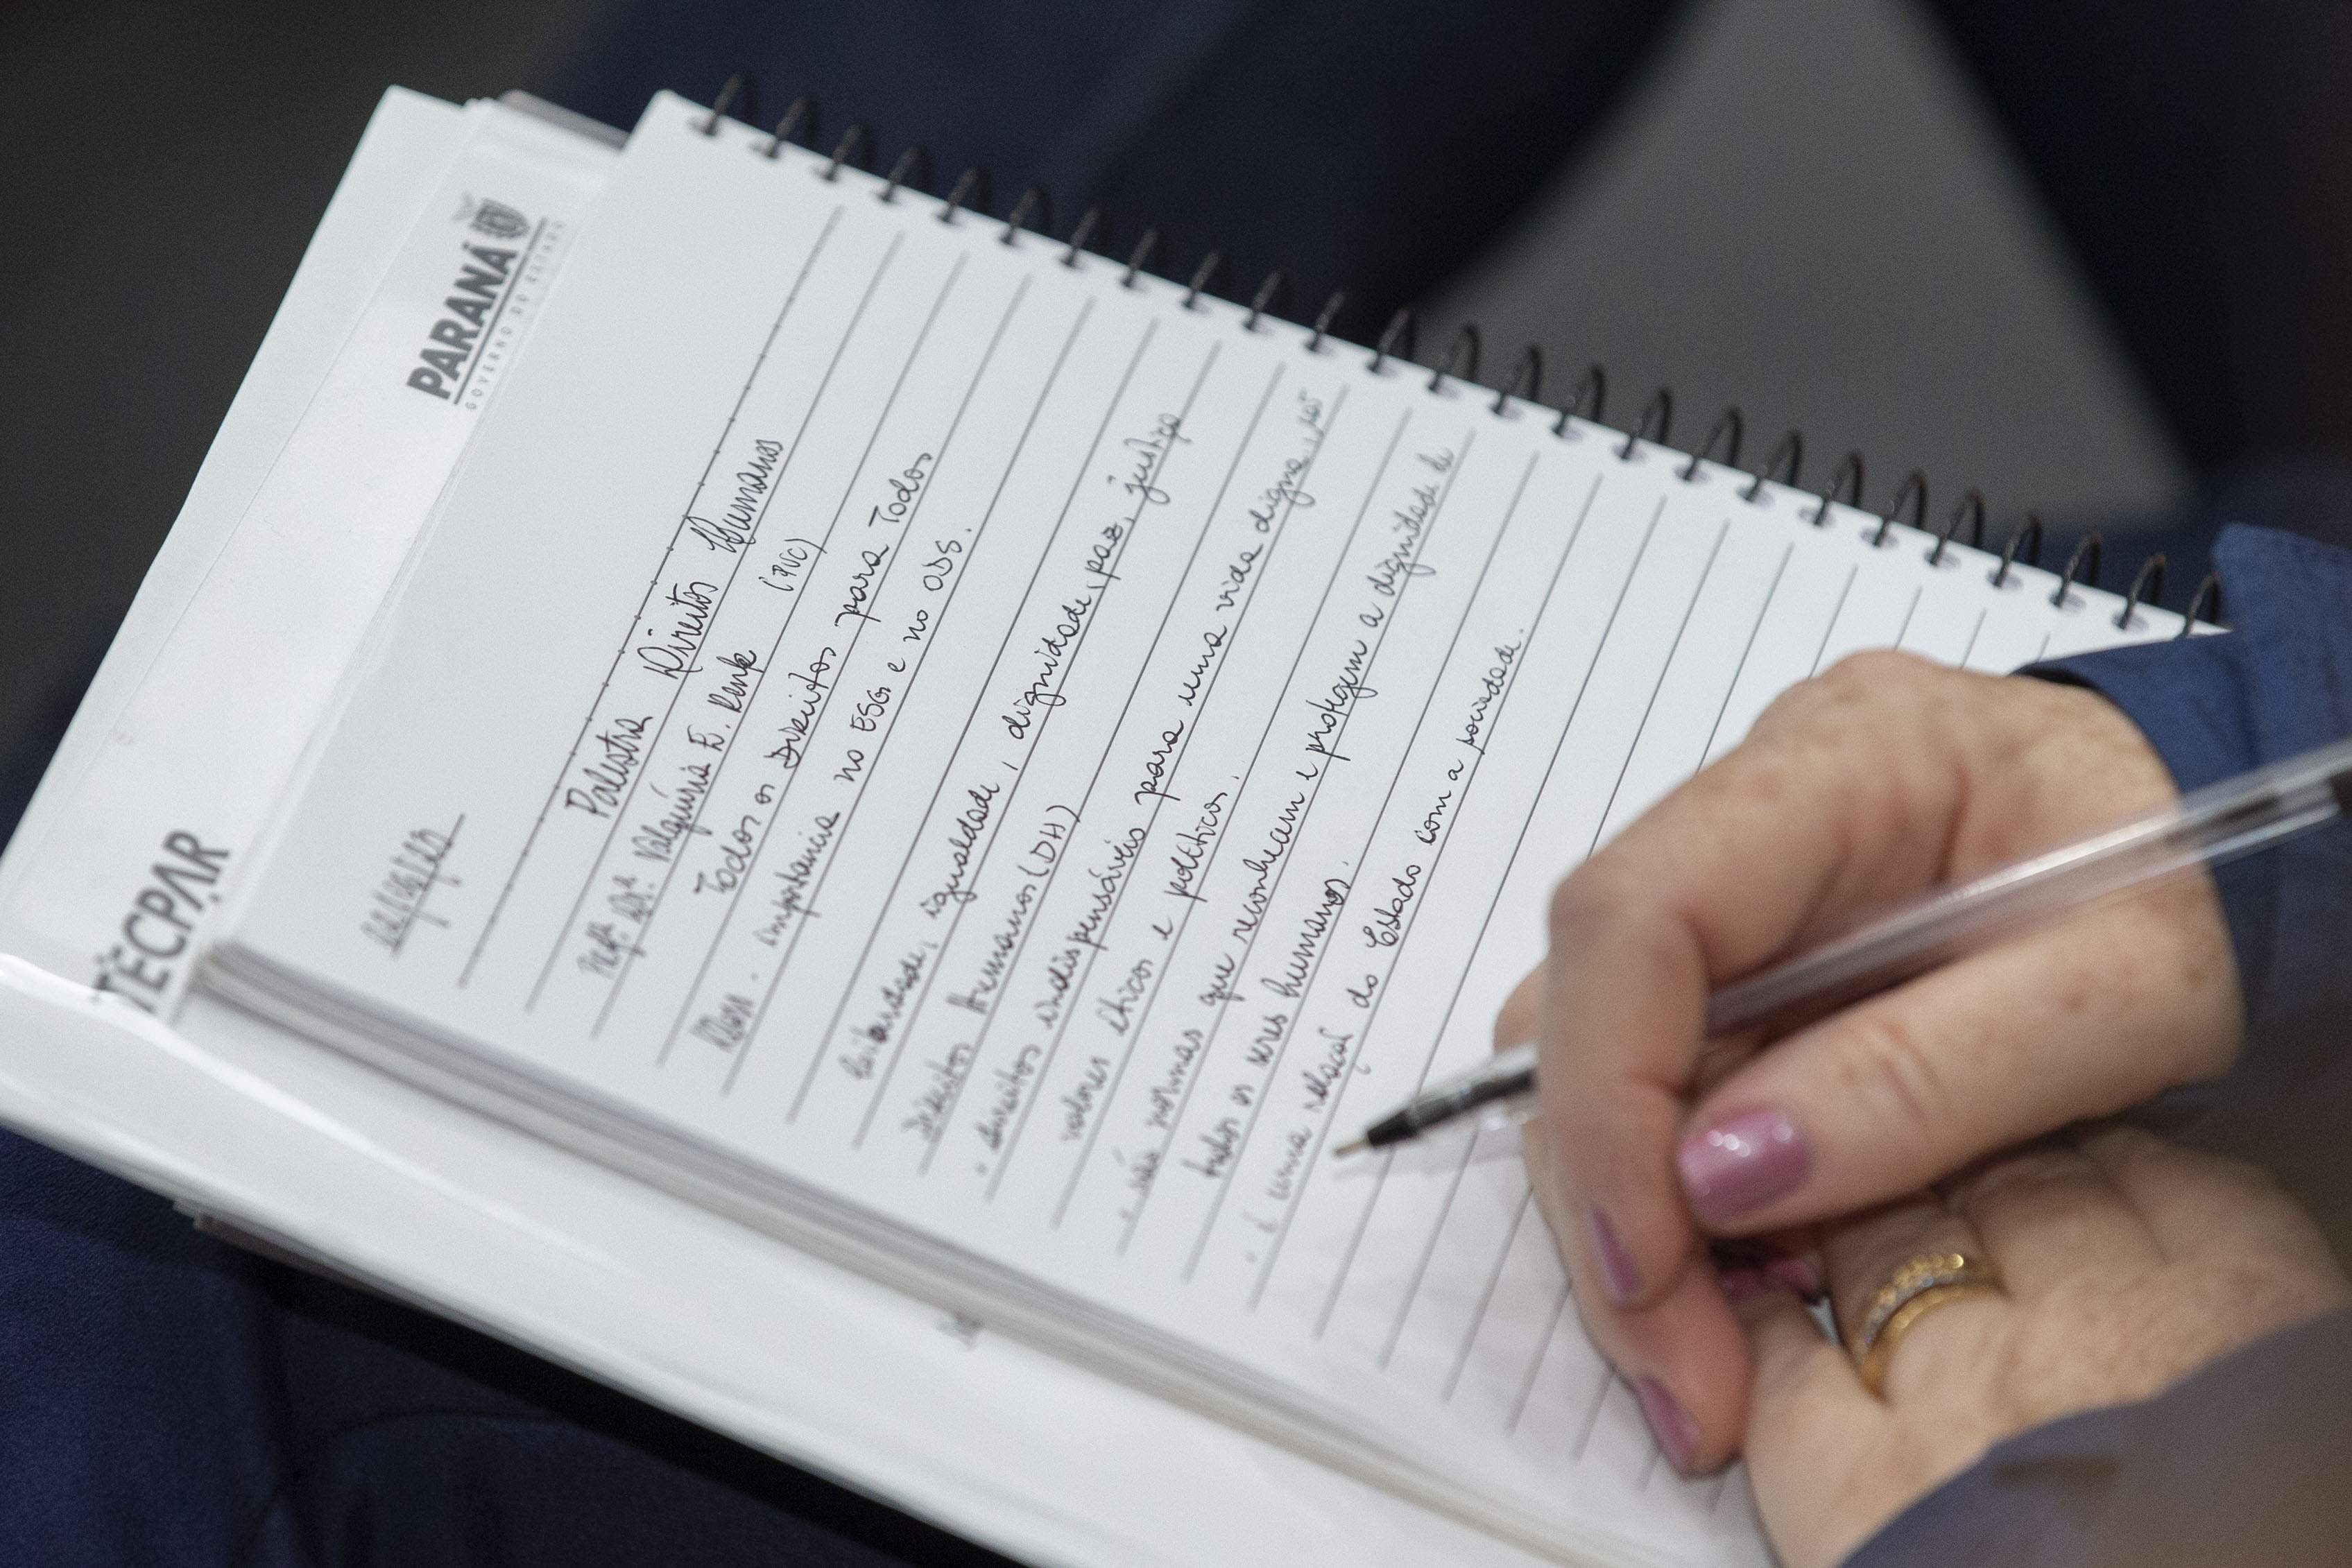 PARANÁ
GOVERNO DO ESTADO
TECPAR
Palestra Direitos Humanos
Profª Drª. Valquíria E. Renk (PUC)
Todos os Direitos para Todos
importancia no ESG e no ODS.
igualdade, dignidade, paz, justiça
Direitos Humanos (DH)
• direitos indispensáveis para uma vida digna
valores éticos e políticos.
• são normas que reconhecem e protegem a dignidade de
todos os seres humanos.
• é uma relaçaõ do Estado com a sociedade.